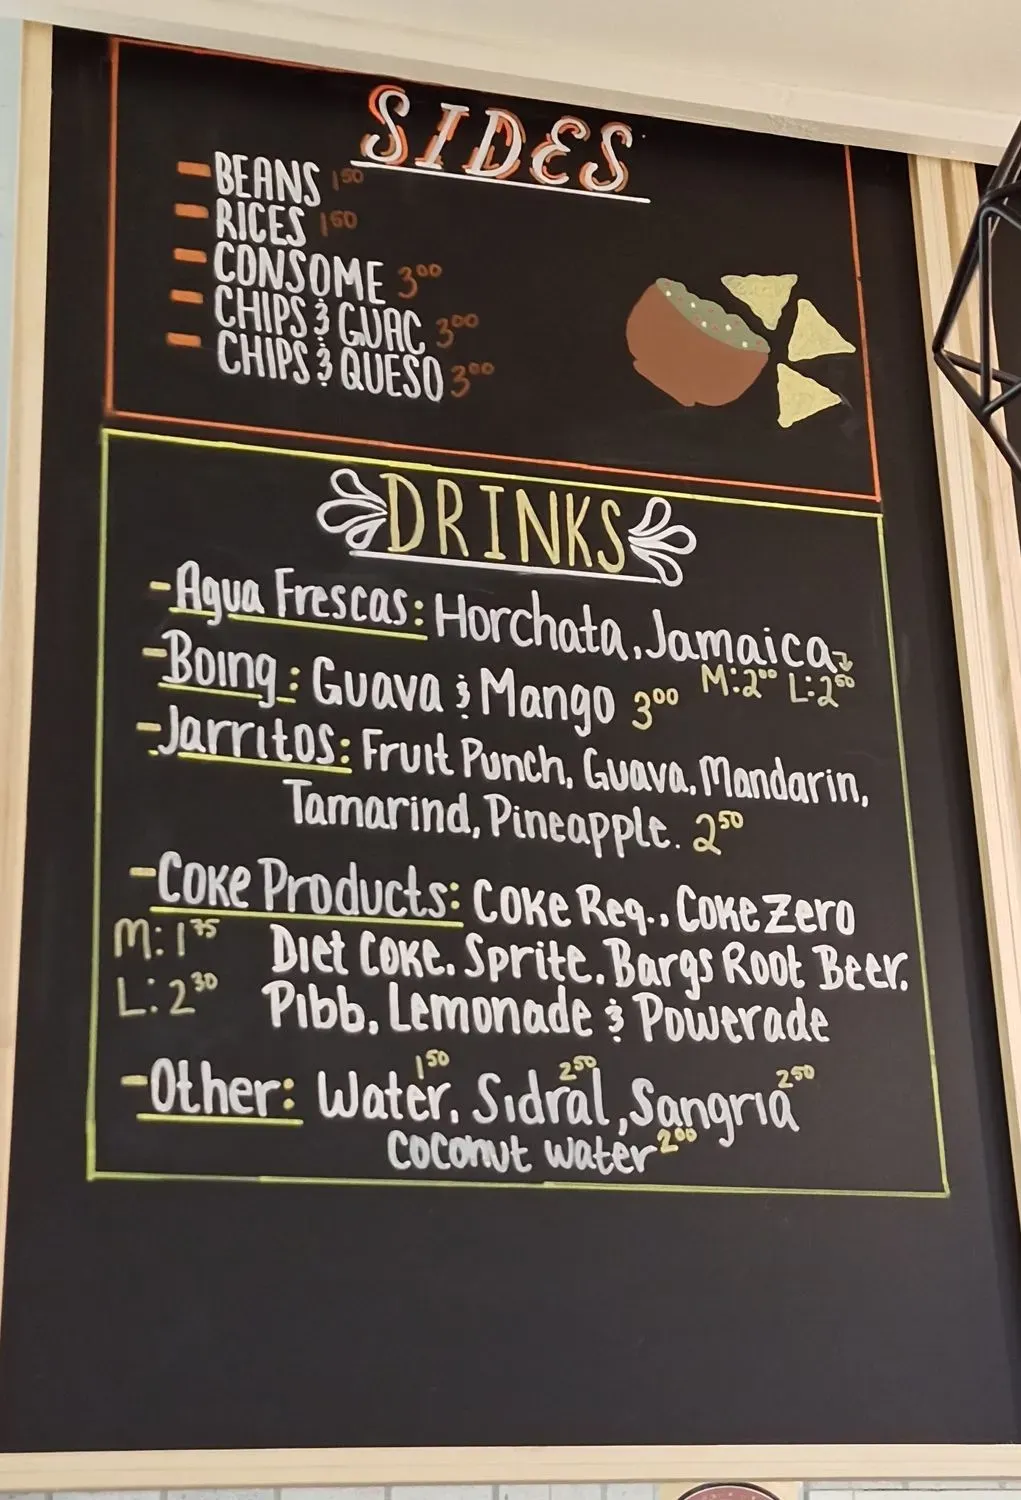 SIDES
- BEANS 1 50
- RICES 1 50
- CONSOME 3 00
- CHIPS & GUAC 3 00
- CHIPS & QUESO 3 00
DRINKS
- Agua Frescas: Horchata, Jamaica
M: 2 00 L: 2 50
- Boing: Guava & Mango 3 00
- Jarritos: Fruit Punch, Guava, Mandarin,
Tamarind, Pineapple. 2 50
- Coke Products: Coke Reg., Coke Zero
M: 1 75 Diet Coke, Sprite, Bargs Root Beer,
L: 2 30 Pibb, Lemonade & Powerade
- Other: Water, 1 50 Sidral, 2 50 Sangria 2 50
Coconut Water 2 00